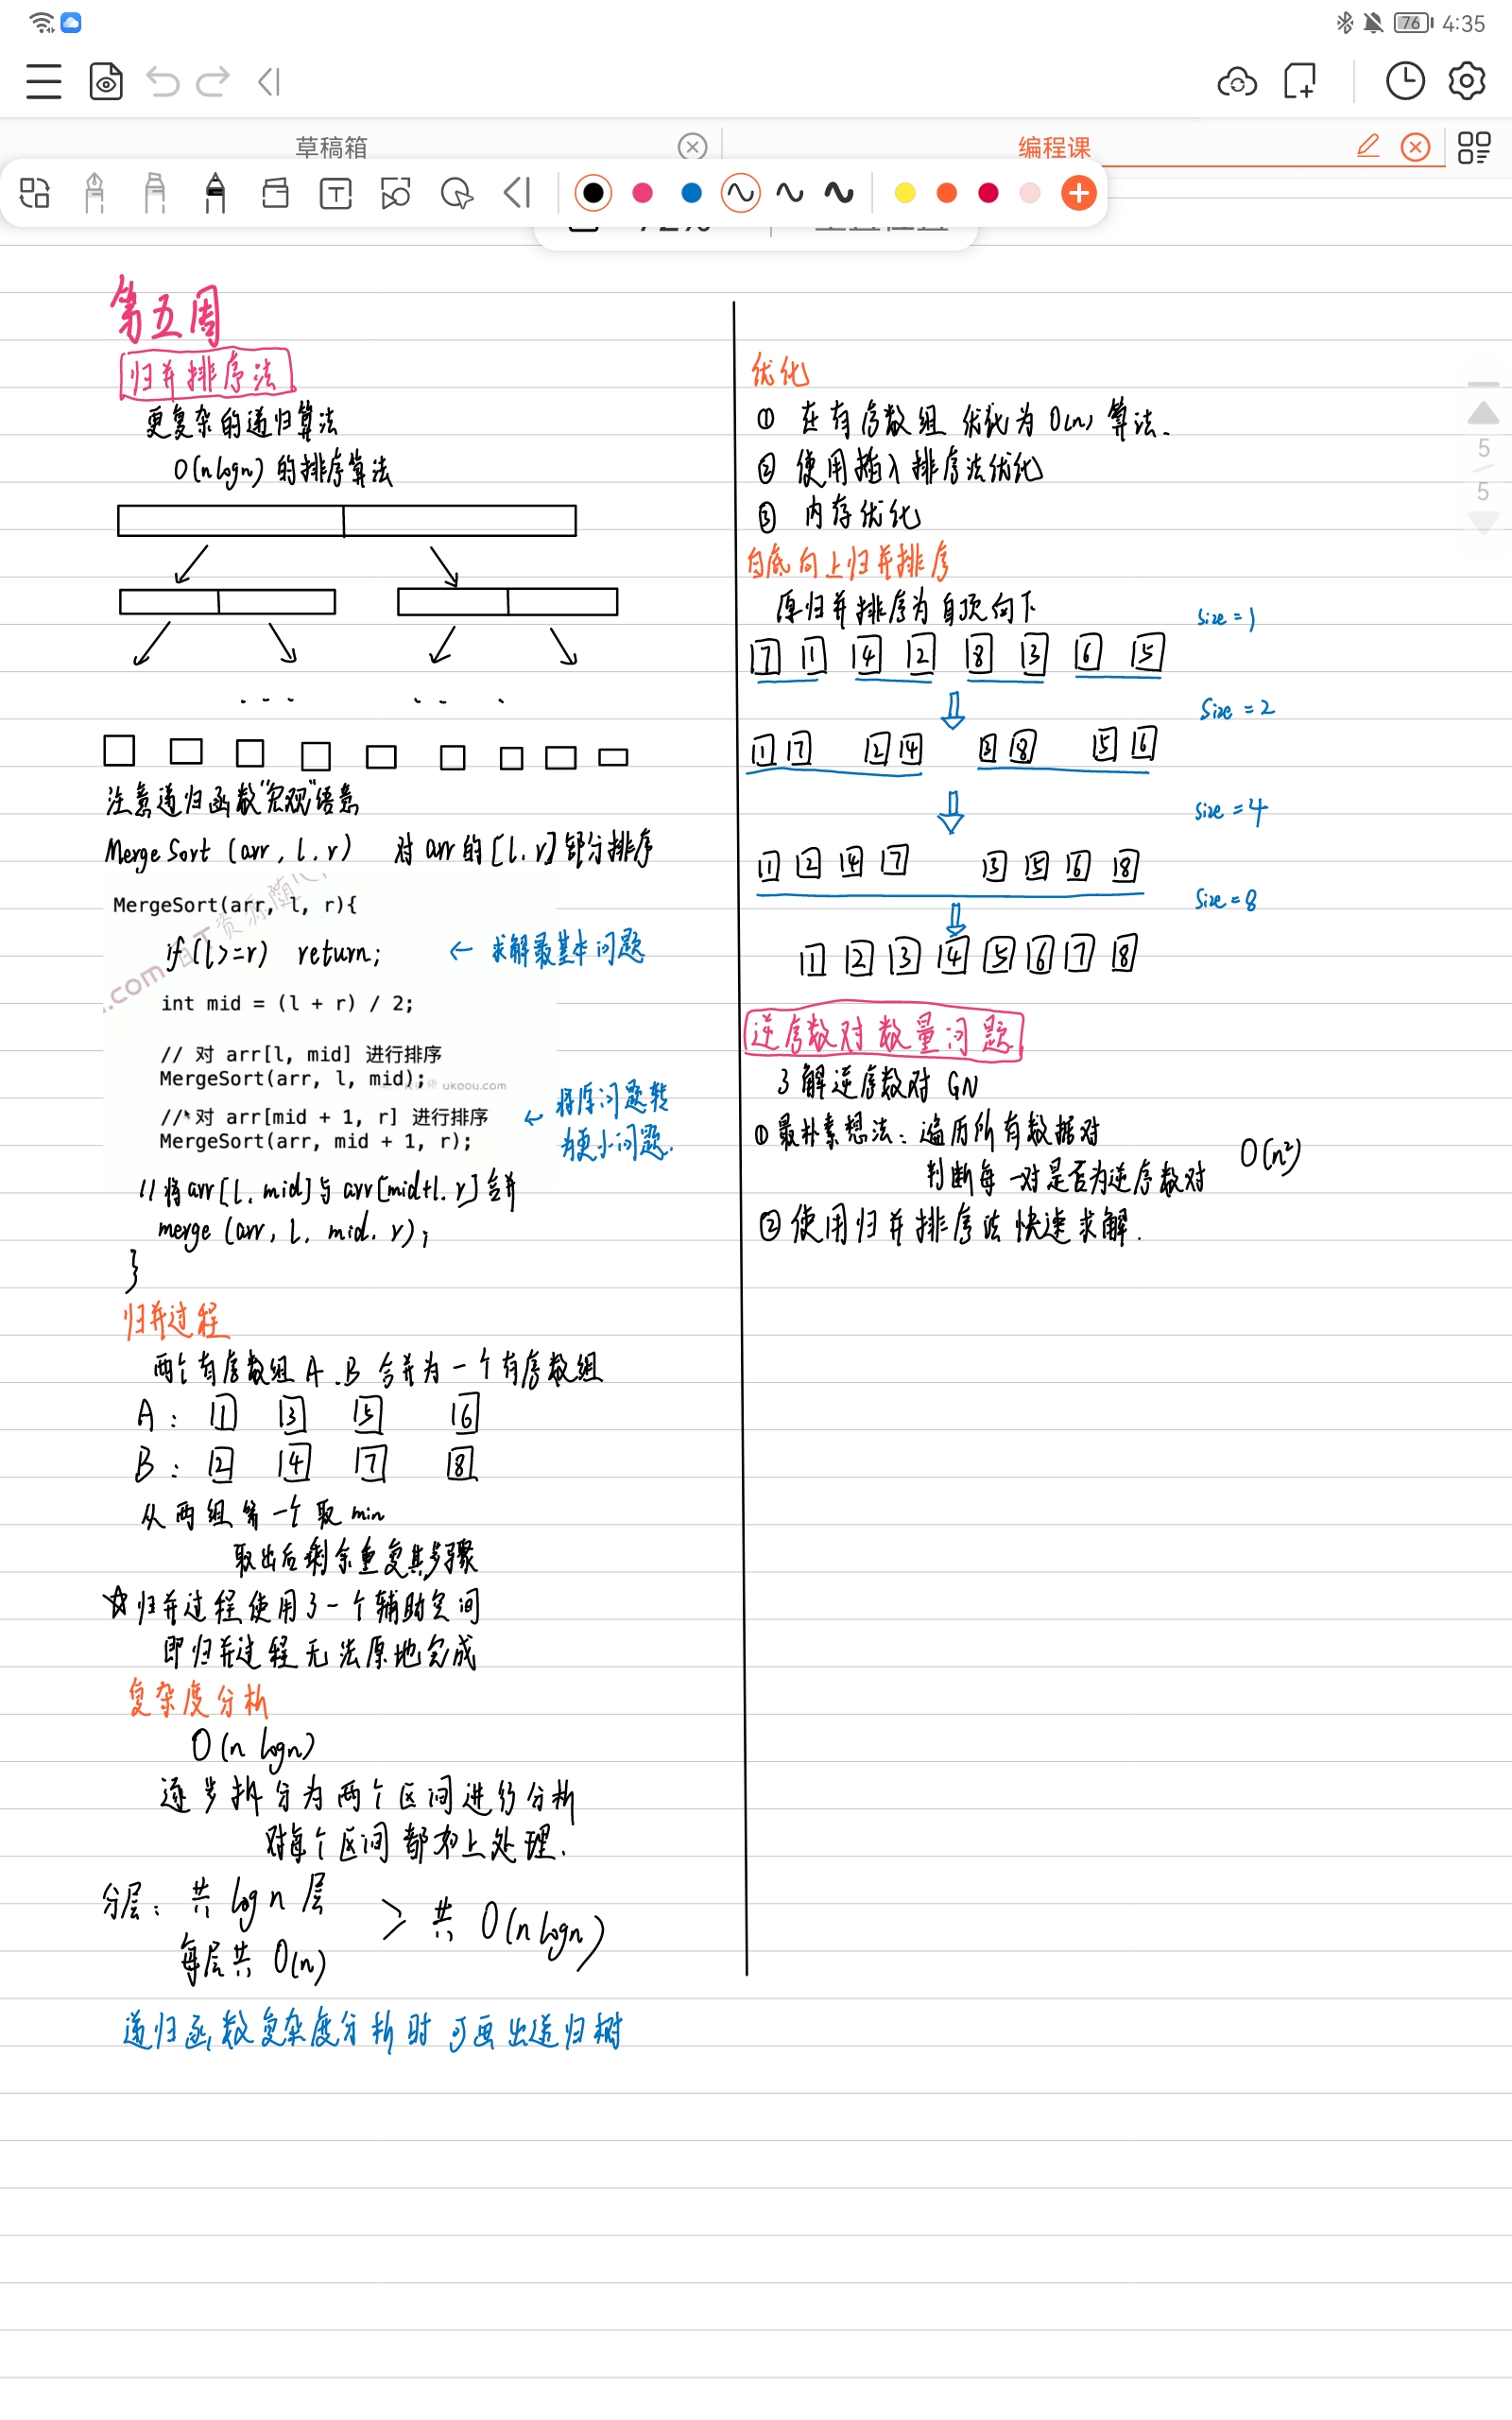 76 4:35
草稿箱
编程课
72%
第五周
归并排序法
更复杂的递归算法
O(nlogn) 的排序算法
注意递归函数"宏观"语意
Merge Sort (arr, l, r) 对 arr 的 [l, r] 部分排序
MergeSort(arr, l, r){
if (l>=r) return; ← 求解最基本问题
int mid = (l + r) / 2;
// 对 arr[l, mid] 进行排序
MergeSort(arr, l, mid);
ukoou.com
// 对 arr[mid + 1, r] 进行排序
MergeSort(arr, mid + 1, r);
← 将原问题转
为更小问题.
// 将 arr[l, mid] 与 arr[mid+1, r] 合并
merge (arr, l, mid, r);
}
归并过程
两个有序数组 A、B 合并为一个有序数组
A: 1 3 5 6
B: 2 4 7 8
从两组第一个取 min
取出后剩余重复其步骤
☆归并过程使用了一个辅助空间
即归并过程无法原地完成
复杂度分析
O(n logn)
逐步拆分为两个区间进行分析
对每个区间都如上处理.
分层: 共 logn 层
每层共 O(n)
> 共 O(n logn)
递归函数复杂度分析时可画出递归树
优化
① 在有序数组 优化为 O(n) 算法.
② 使用插入排序法优化
③ 内存优化
自底向上归并排序
原归并排序为自顶向下
Size = 1
7 1 4 2 8 3 6 5
Size = 2
1 7 2 4 3 8 5 6
Size = 4
1 2 4 7 3 5 6 8
Size = 8
1 2 3 4 5 6 7 8
逆序数对数量问题
了解逆序数对 GN
① 最朴素想法: 遍历所有数据对
判断每一对是否为逆序数对 O(n²)
② 使用归并排序法快速求解.
5
5